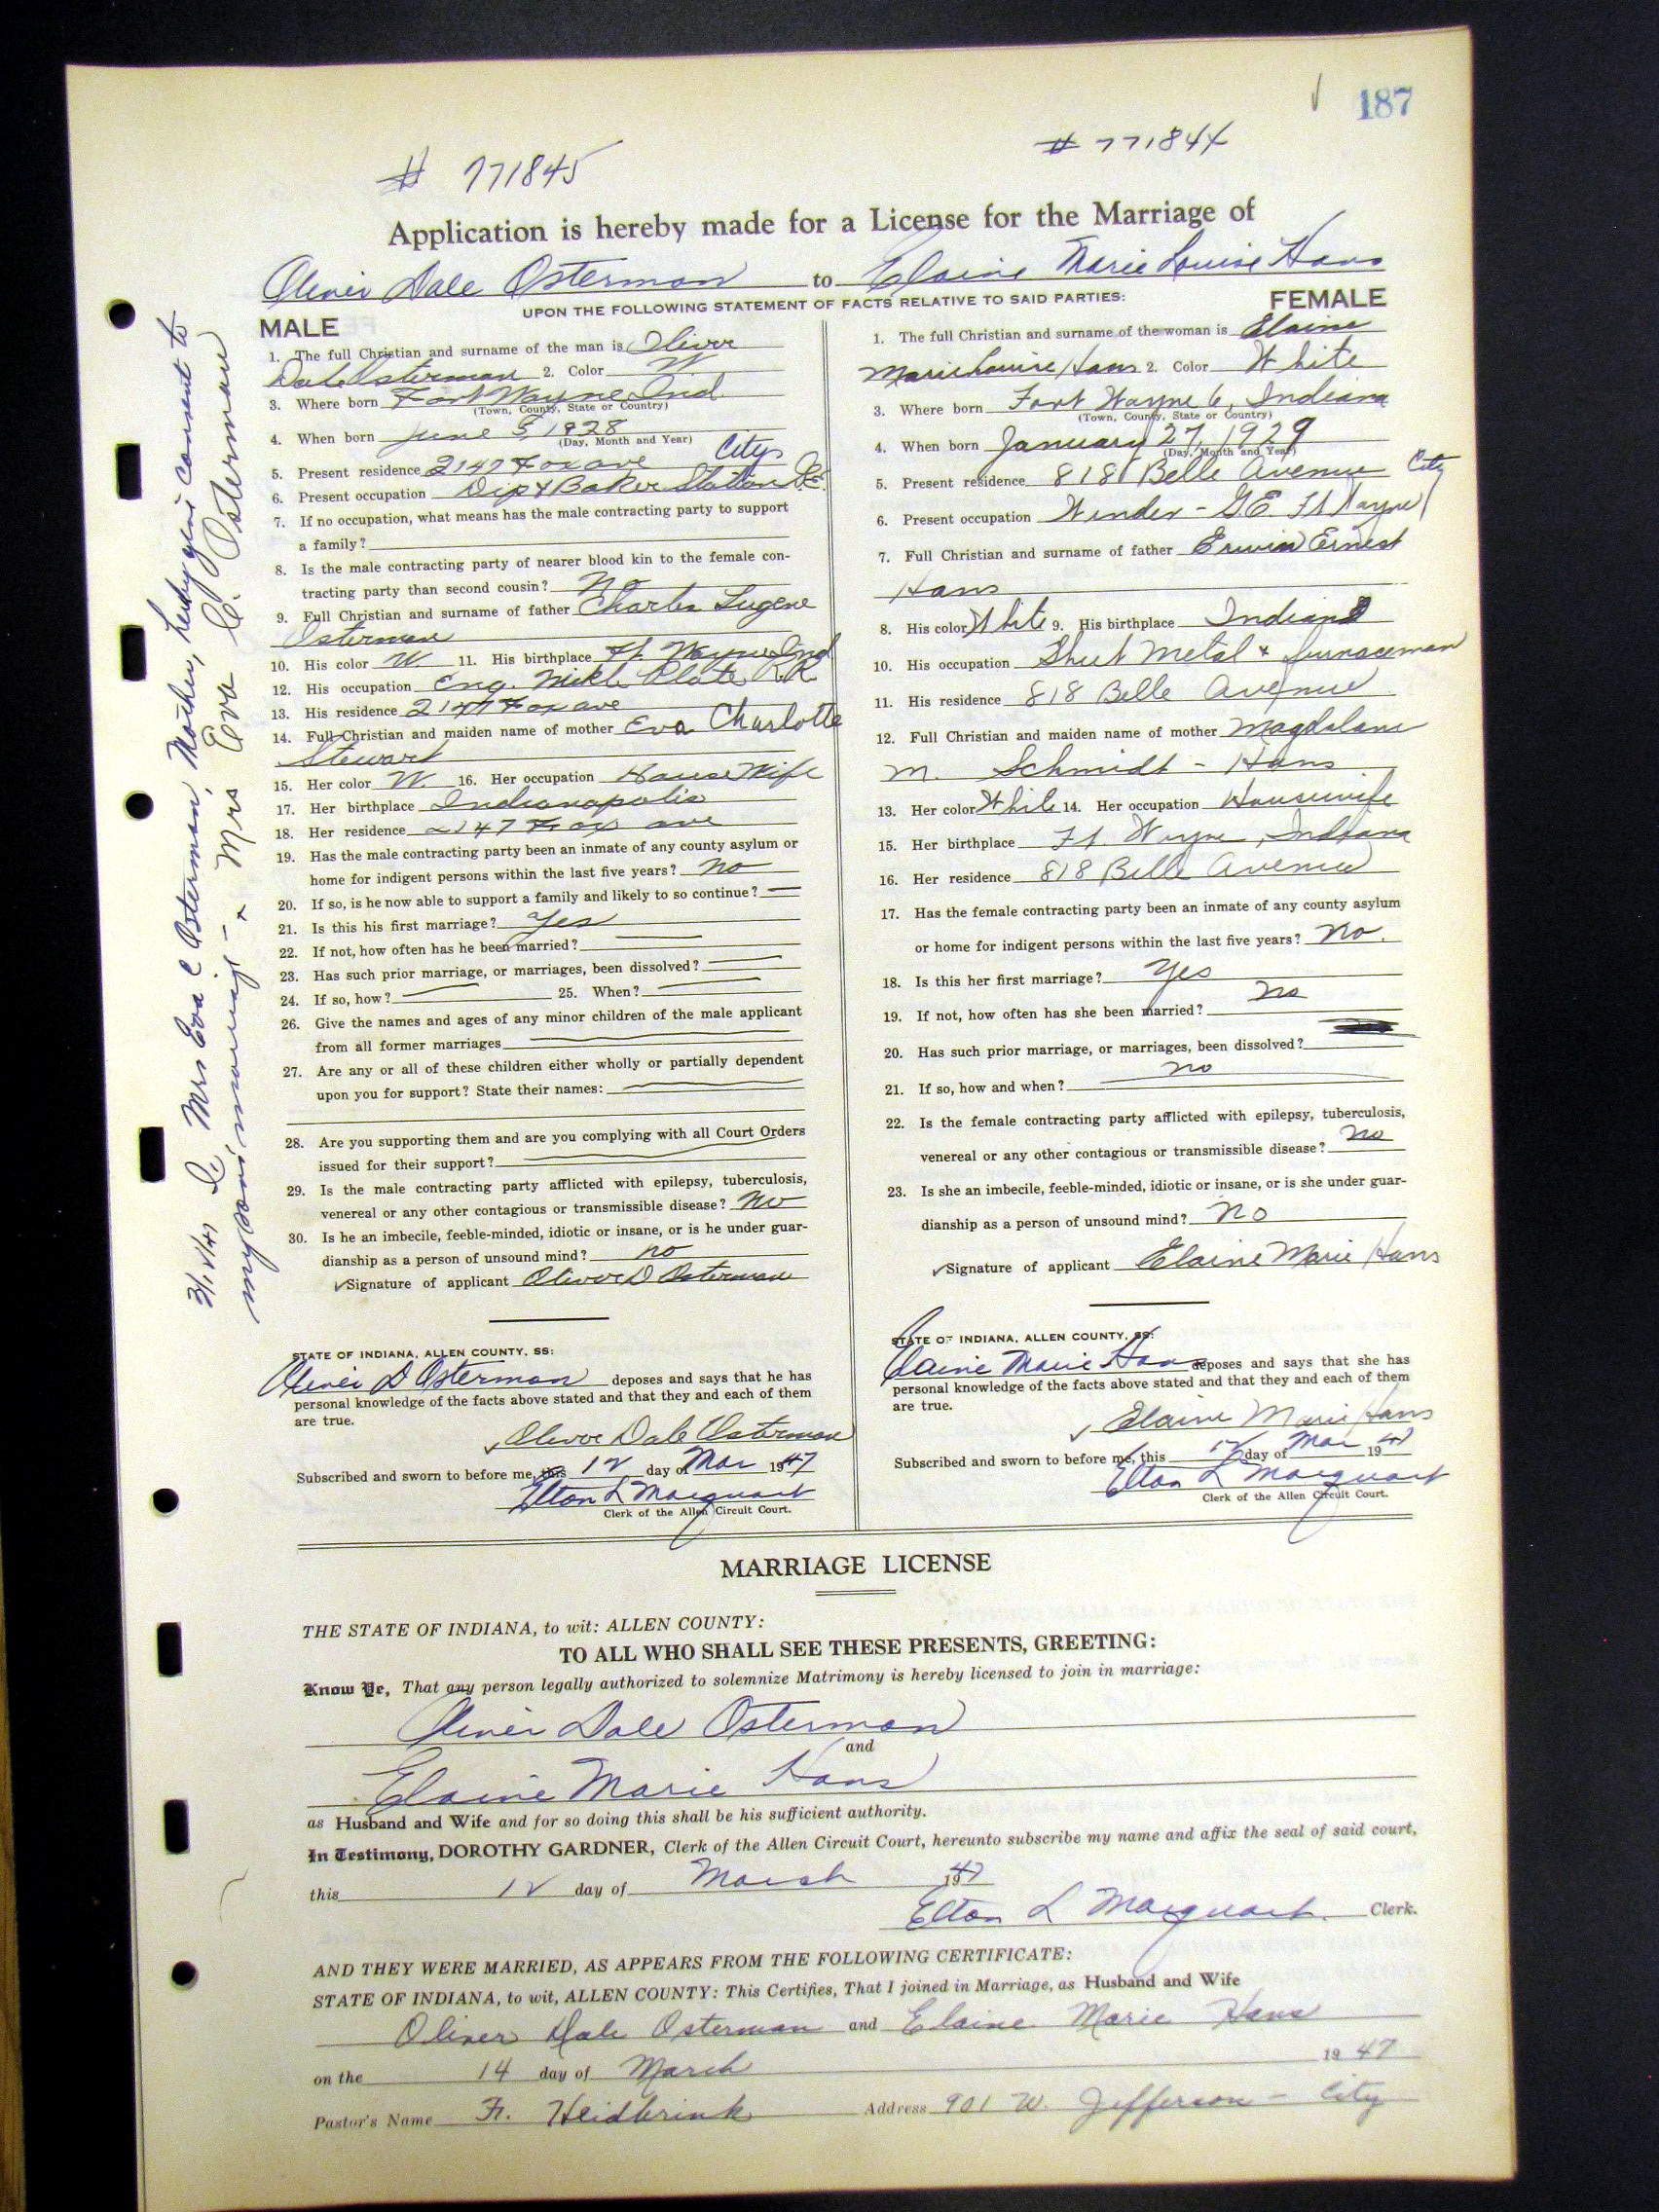 187
# 771845
# 771844
Application is hereby made for a License for the Marriage of
Oliver Dale Osterman to Elaine Marie Louise Hans
UPON THE FOLLOWING STATEMENT OF FACTS RELATIVE TO SAID PARTIES:
MALE
1. The full Christian and surname of the man is Oliver
Dale Osterman 2. Color W
3. Where born Fort Wayne Ind.
(Town, County, State or Country)
4. When born June 5, 1928
(Day, Month and Year)
5. Present residence 2147 Fox ave City
6. Present occupation Dip & Baker Station G.E.
7. If no occupation, what means has the male contracting party to support
a family?
8. Is the male contracting party of nearer blood kin to the female con-
tracting party than second cousin? No
9. Full Christian and surname of father Charles Eugene
Osterman
10. His color W 11. His birthplace Ft. Wayne Ind
12. His occupation Eng. Nickle Plate R.R.
13. His residence 2147 Fox ave
14. Full Christian and maiden name of mother Eva Charlotte
Stewart
15. Her color W. 16. Her occupation House Wife
17. Her birthplace Indianapolis
18. Her residence 2147 Fox ave
19. Has the male contracting party been an inmate of any county asylum or
home for indigent persons within the last five years? No
20. If so, is he now able to support a family and likely to so continue?
21. Is this his first marriage? Yes
22. If not, how often has he been married?
23. Has such prior marriage, or marriages, been dissolved?
24. If so, how? 25. When?
26. Give the names and ages of any minor children of the male applicant
from all former marriages
27. Are any or all of these children either wholly or partially dependent
upon you for support? State their names:
28. Are you supporting them and are you complying with all Court Orders
issued for their support?
29. Is the male contracting party afflicted with epilepsy, tuberculosis,
venereal or any other contagious or transmissible disease? No
30. Is he an imbecile, feeble-minded, idiotic or insane, or is he under guar-
dianship as a person of unsound mind? no
✓Signature of applicant Oliver D Osterman
STATE OF INDIANA, ALLEN COUNTY, SS:
Oliver D Osterman deposes and says that he has
personal knowledge of the facts above stated and that they and each of them
are true.
✓ Oliver Dale Osterman
Subscribed and sworn to before me, this 12 day of Mar 1947
Elton L Marquart
Clerk of the Allen Circuit Court.
FEMALE
1. The full Christian and surname of the woman is Elaine
Marie Louise Hans 2. Color White
3. Where born Fort Wayne 6, Indiana
(Town, County, State or Country)
4. When born January 27, 1929
(Day, Month and Year)
5. Present residence 818 Belle Avenue City
6. Present occupation Winder - G.E. Ft Wayne
7. Full Christian and surname of father Erwin Ernest
Hans
8. His color White 9. His birthplace Indiana
10. His occupation Sheet Metal & furnaceman
11. His residence 818 Belle Avenue
12. Full Christian and maiden name of mother Magdalane
M. Schmidt - Hans
13. Her color White 14. Her occupation Housewife
15. Her birthplace Ft. Wayne, Indiana
16. Her residence 818 Belle Avenue
17. Has the female contracting party been an inmate of any county asylum
or home for indigent persons within the last five years? No.
18. Is this her first marriage? Yes
19. If not, how often has she been married? No
20. Has such prior marriage, or marriages, been dissolved?
21. If so, how and when? No
22. Is the female contracting party afflicted with epilepsy, tuberculosis,
venereal or any other contagious or transmissible disease? No
23. Is she an imbecile, feeble-minded, idiotic or insane, or is she under guar-
dianship as a person of unsound mind? No
✓Signature of applicant Elaine Marie Hans
STATE OF INDIANA, ALLEN COUNTY, SS:
Elaine Marie Hans deposes and says that she has
personal knowledge of the facts above stated and that they and each of them
are true.
✓ Elaine Marie Hans
Subscribed and sworn to before me, this 12 day of Mar 1947
Elton L Marquart
Clerk of the Allen Circuit Court.
I, Mrs Eva C Osterman, Mother, hereby give consent to
my sons marriage - x Mrs Eva C. Osterman
MARRIAGE LICENSE
THE STATE OF INDIANA, to wit: ALLEN COUNTY:
TO ALL WHO SHALL SEE THESE PRESENTS, GREETING:
Know Ye, That any person legally authorized to solemnize Matrimony is hereby licensed to join in marriage:
Oliver Dale Osterman
and
Elaine Marie Hans
as Husband and Wife and for so doing this shall be his sufficient authority.
In Testimony, DOROTHY GARDNER, Clerk of the Allen Circuit Court, hereunto subscribe my name and affix the seal of said court,
this 12 day of March 1947
Elton L Marquart. Clerk.
AND THEY WERE MARRIED, AS APPEARS FROM THE FOLLOWING CERTIFICATE:
STATE OF INDIANA, to wit, ALLEN COUNTY: This Certifies, That I joined in Marriage, as Husband and Wife
Oliver Dale Osterman and Elaine Marie Hans
on the 14 day of March 1947
Pastor's Name Fr. Heidbrink Address 901 W. Jefferson - City